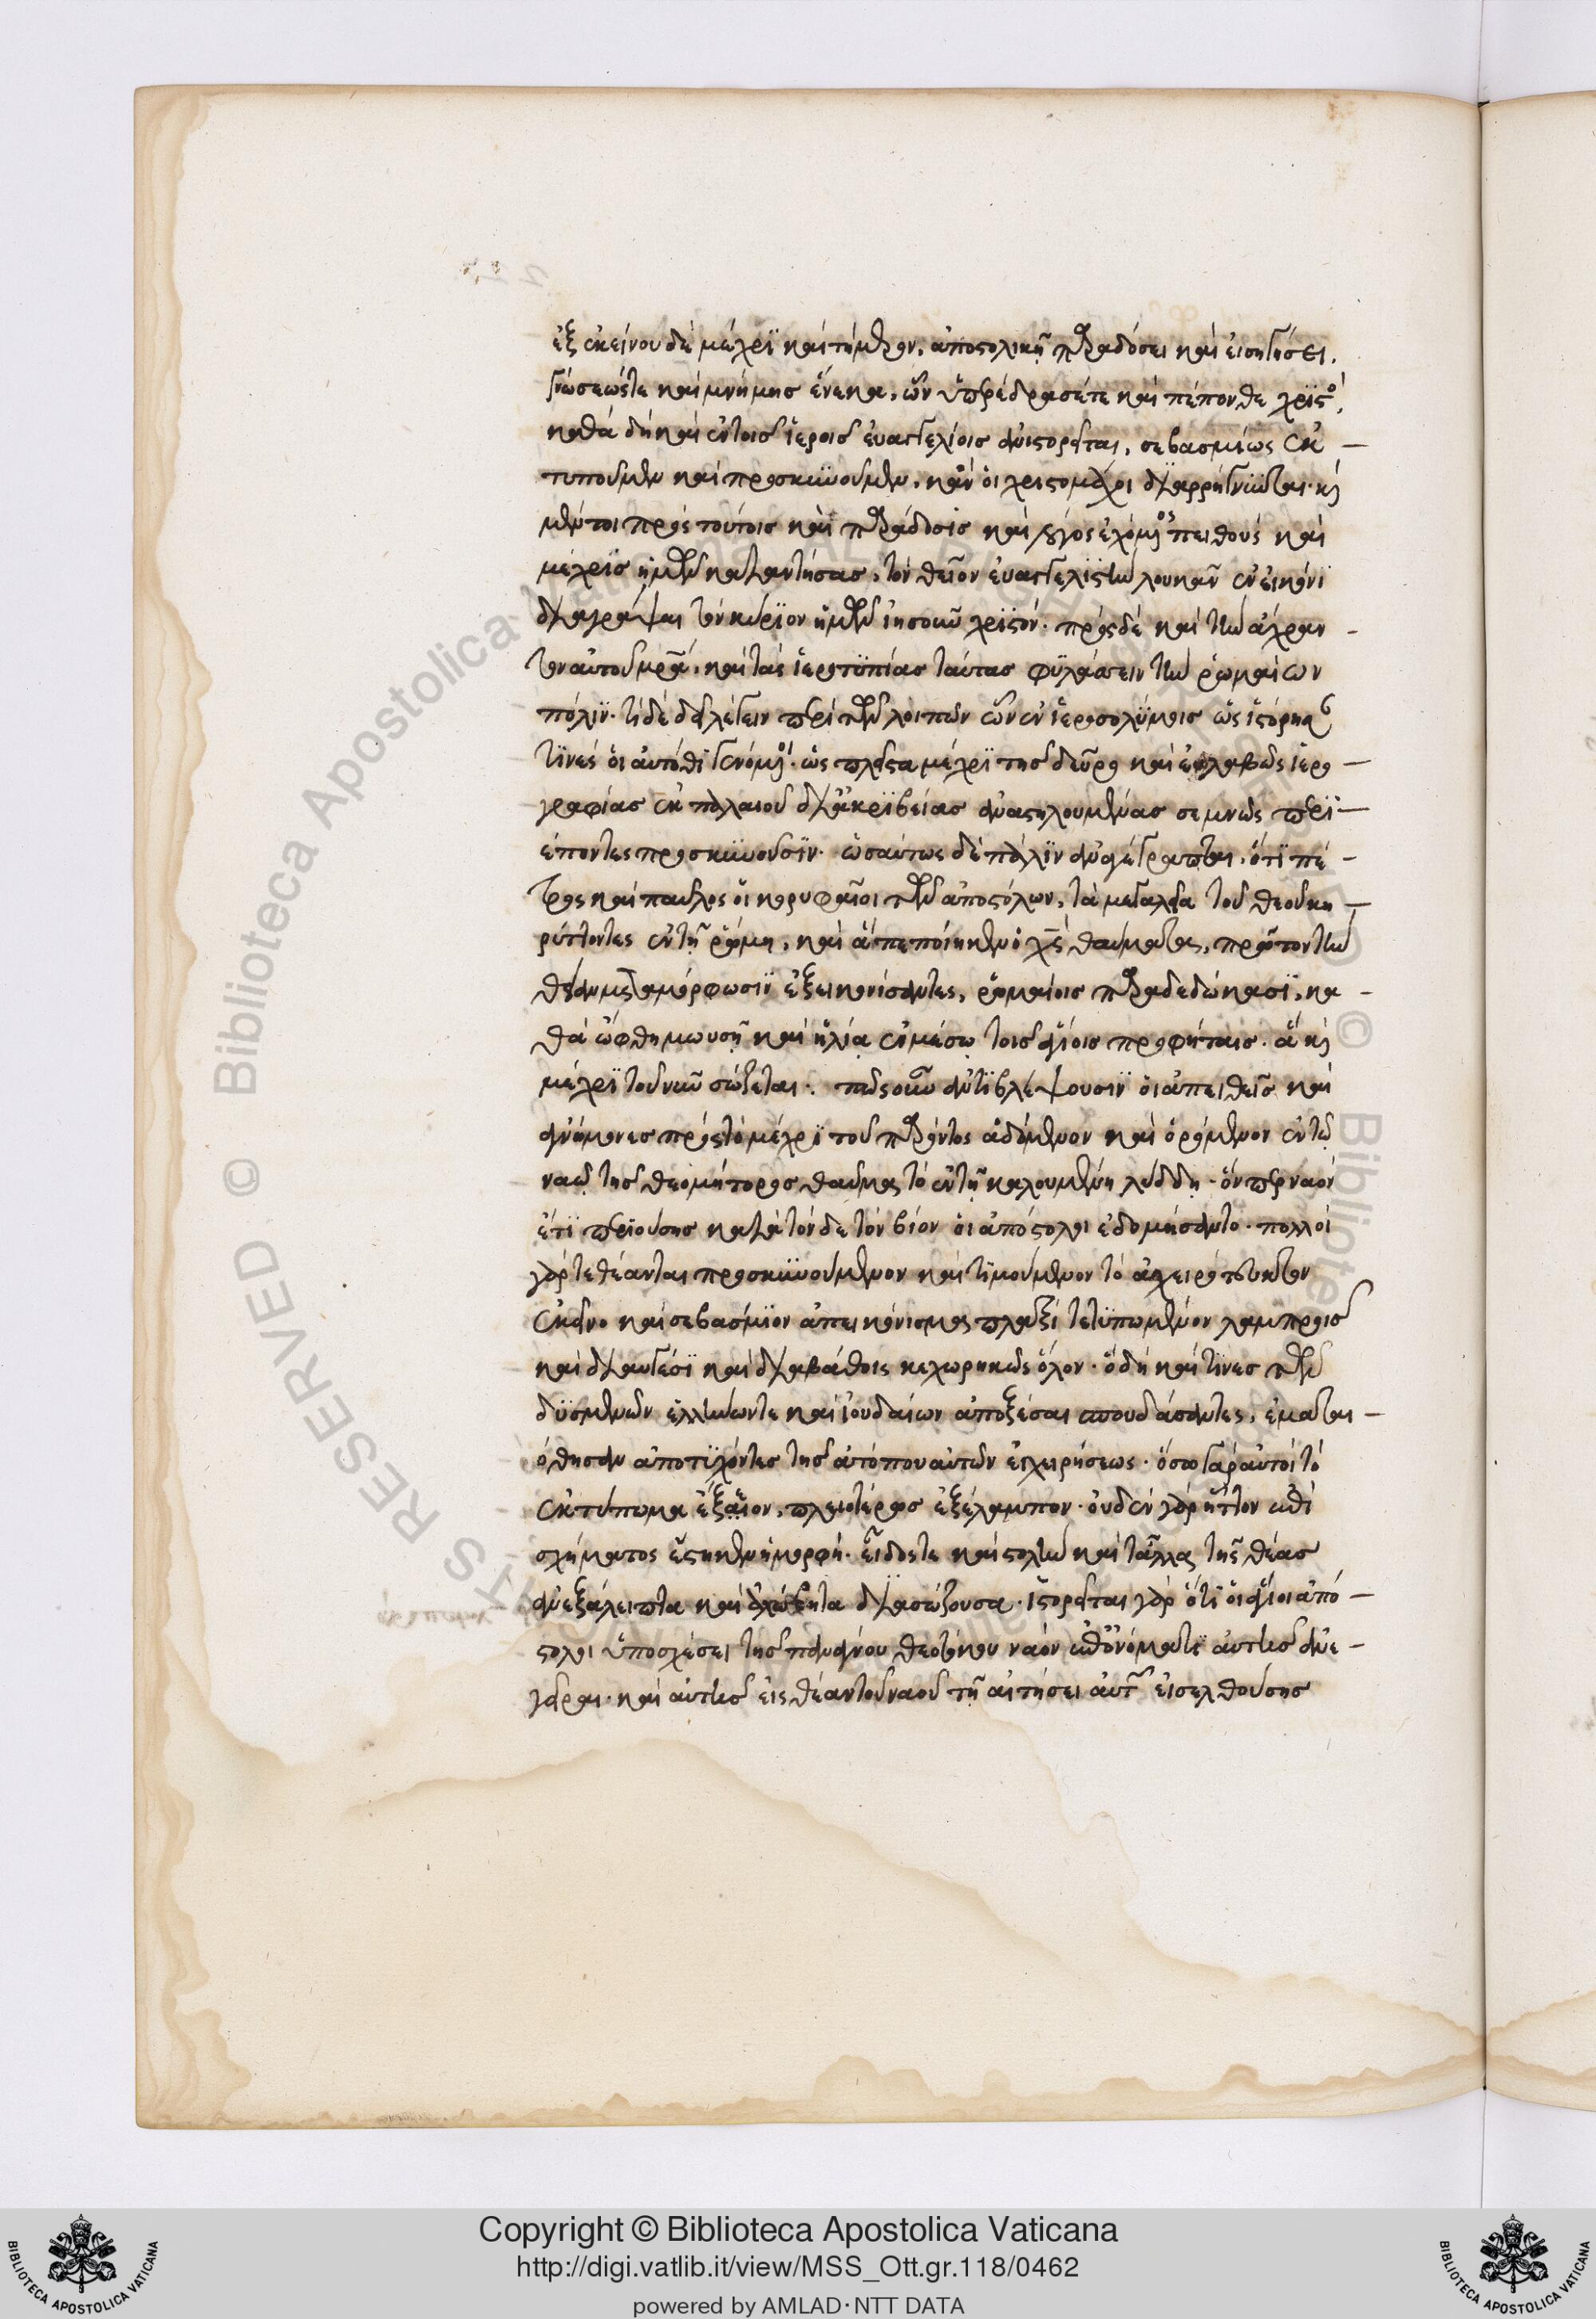 ἐξ ἐκείνου δὲ μέχρι καὶ τήμερον, ἀποστολικῇ παραδόσει καὶ εἰσηγήσει,
γνώσεώς τε καὶ μνήμης ἕνεκα, ὧν ὑπερέδρασέ τε καὶ πέπονθε χριστὸς,
καθὰ δὴ καὶ ἐν τοῖς ἱεροῖς εὐαγγελίοις ἀνιστορεῖται, σεβασμίως ἐκ –
τυποῦμεν καὶ προσκυνοῦμεν, κἂν οἱ χριστομάχοι διαρρήγνυνται. καὶ
μέντοι πρὸς τούτοις καὶ παράδοσις καὶ λόγος ἐχόμενος πειθοῦς καὶ
μέχρις ἡμῶν καταντήσας, τὸν θεῖον εὐαγγελιστὴν λουκᾶν ἐν εἰκόνι
διαγράψαι τὸν κύριον ἡμῶν ἰησοῦν χριστόν. πρὸς δὲ καὶ τὴν ἄχραν –
τον αὐτοῦ μητέρα, καὶ τὰς ἱεροτυπίας ταύτας φυλάσσειν τὴν ῥωμαίων
πόλιν. τί δὲ δεῖ λέγειν περὶ τῶν λοιπῶν ὧν ἐν ἱεροσολύμοις ὡς ἱστόρησαν
τινὲς οἱ αὐτόθι γενόμενοι. ὡς πλεῖστα μέχρι τῆς δεῦρο καὶ εὐλαβῶς ἱερο –
γραφίας ἐκ παλαιοῦ δι' ἀκριβείας ἀναστηλουμένας σεμνῶς περι –
έποντες προσκυνοῦσιν. ὡσαύτως δὲ πάλιν ἀναγέγραπται, ὅτι πέ –
τρος καὶ παῦλος οἱ κορυφαῖοι τῶν ἀποστόλων, τὰ μεγαλεῖα τοῦ θεοῦ κη –
ρύττοντες ἐν τῇ ῥώμῃ, καὶ ἃ πεποίηκεν ὁ χς θαύματα, πρῶτον τὴν
θείαν μεταμόρφωσιν ἐξεικονίσαντες, ῥωμαίοις παραδεδώκασι, κα –
θὰ ὤφθη μωυσῇ καὶ ἠλίᾳ ἐν μέσῳ τοῖς ἁγίοις προφήταις. ἃ καὶ
μέχρι τοῦ νῦν σώζεται. πῶς οὖν ἀντιβλέψουσιν οἱ ἀπειθεῖς καὶ
ἀγνώμονες πρὸς τὸ μέχρι τοῦ παρόντος ᾀδόμενον καὶ ὁρώμενον ἐν τῷ
ναῷ τῆς θεομήτορος θαυμαστὸ ἐν τῇ καλουμένῃ λύδδῃ. ὅνπερ ναὸν
ἔτι περιούσης κατὰ τόνδε τὸν βίον οἱ ἀπόστολοι ἐδομήσαντο. πολλοὶ
γὰρ τεθέανται προσκυνούμενον καὶ τιμούμενον τὸ ἀχειρότευκτον
ἐκεῖνο καὶ σεβάσμιον ἀπεικόνισμα πλαξὶ τετυπωμένον λαμπραῖς
καὶ διαυγέσι καὶ διὰ βάθους κεχωρηκὼς ὅλον. ὃ δὴ καὶ τινὲς τῶν
δυσμενῶν ἑλλήνων τε καὶ ἰουδαίων ἀποξέσαι σπουδάσαντες, ἐμαται –
όθησαν ἀποτυχόντες τῆς ἀτόπου αὐτῶν ἐγχειρήσεως. ὅσω γὰρ αὐτοὶ τὸ
ἐκτύπωμα ἔξεον, πλειοτέρως ἐξέλαμπον. οὐδὲν γὰρ ἧττον ἐπὶ
σχήματος ἕστηκεν ἡ μορφή. εἶδος τε καὶ στολὴν καὶ τἄλλα τῆς θέας
ἀνεξάλειπτα καὶ ἀλώβητα διασώζουσα. ἱστορεῖται γὰρ ὅτι οἱ ἅγιοι ἀπό –
στολοι ὑποσχέσει τῆς παναγνου θεοτόκου ναὸν ἐπ' ὀνόματι αὐτῆς ἀνε –
γεῖραι. καὶ αὐτῆς εἰς θέαν τοῦ ναοῦ τῇ αἰτήσει αὐτῶν εἰσελθούσης
Copyright © Biblioteca Apostolica Vaticana
http://digi.vatlib.it/view/MSS_Ott.gr.118/0462
powered by AMLAD·NTT DATA